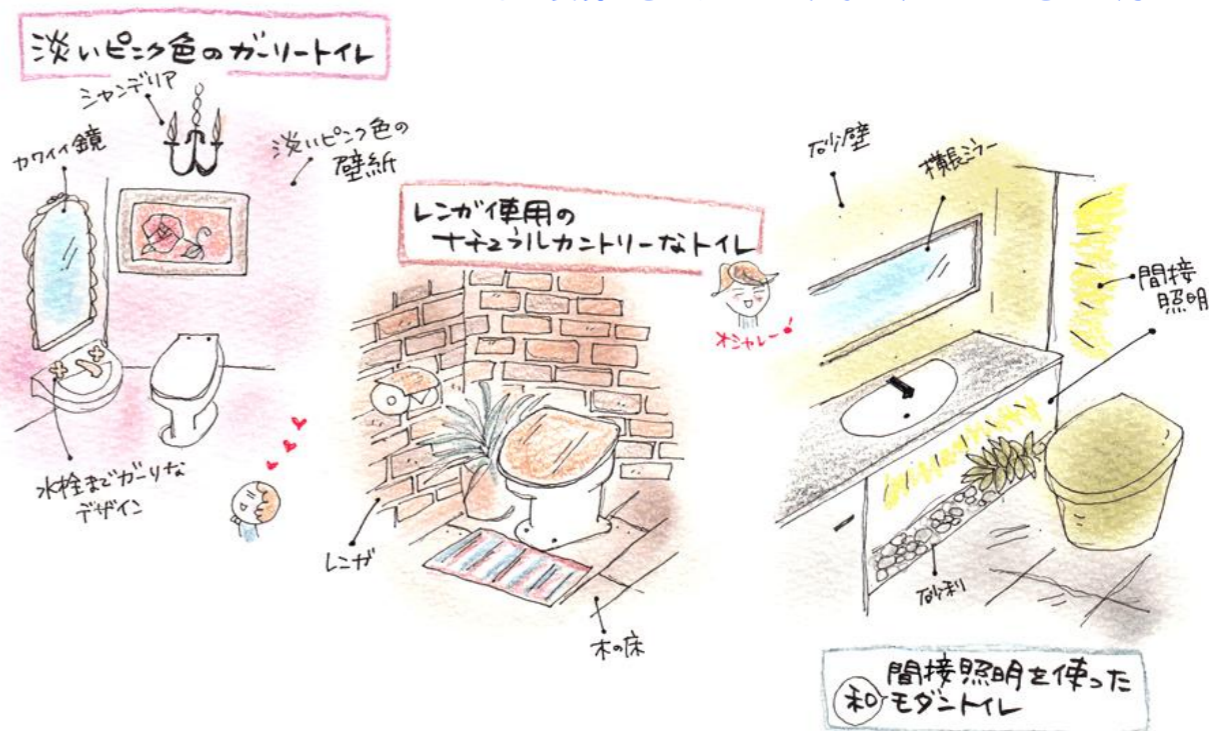 淡いピンク色のガーリートイレ
シャンデリア
カワイイ鏡
淡いピンク色の
壁紙
水栓までガーリな
デザイン
レンガ使用の
ナチュラルカントリーなトイレ
オシャレー!
レンガ
木の床
砂壁
横長ミラー
間接
照明
砂利
間接照明を使った
和モダントイレ